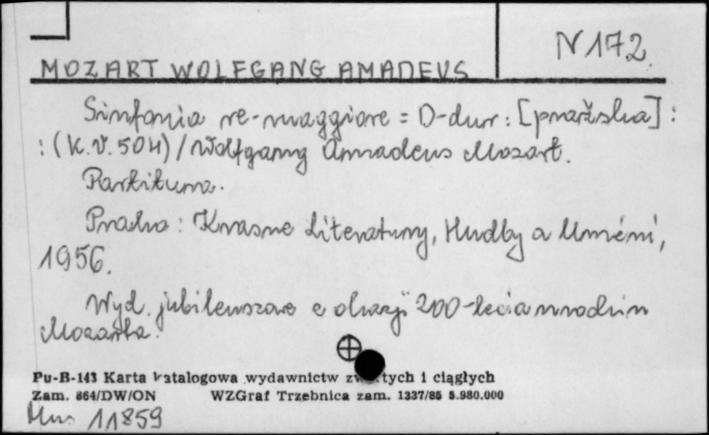 N 172
MOZART WOLFGANG AMADEUS
Sinfonia re-maggiore = D-dur : [pražska] :
: (K.V. 504) / Wolfgang Amadeus Mozart.
Partitura.
Praha : Krasne Literatury, Hudby a Uméni,
1956.
Wyd. jubileuszowe z okazji 200-lecia urodzin
Mozarta.
Pu-B-143 Karta katalogowa wydawnictw zwartych i ciągłych
Zam. 864/DW/ON WZGraf Trzebnica zam. 1337/85 5.980.000
Mus 11859